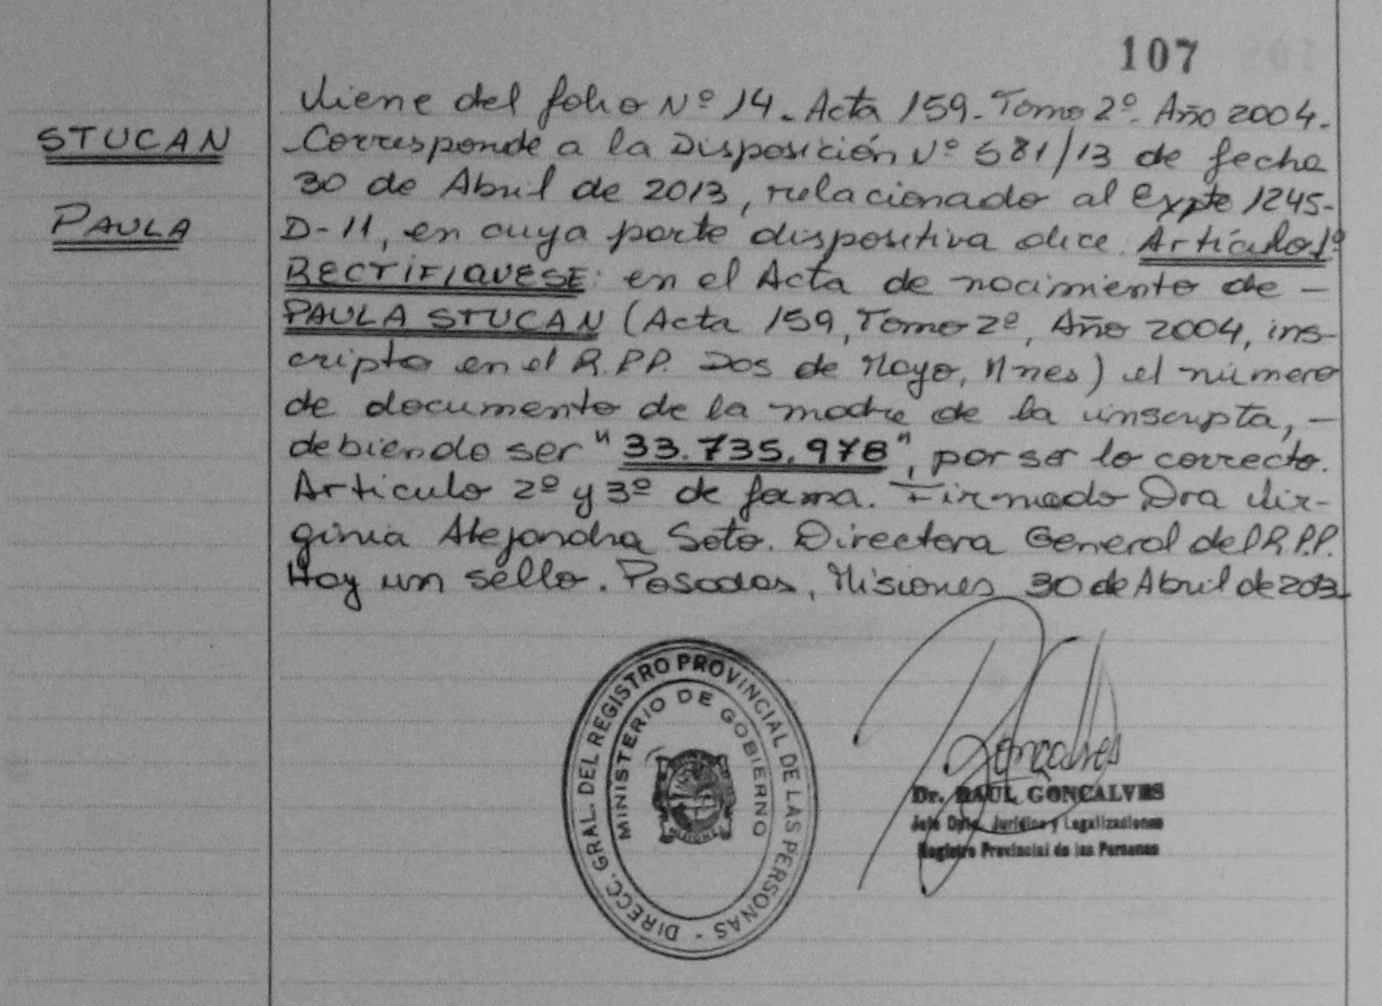 107
STUCAN
PAULA
Viene del folio Nº 14. Acta 159. Tomo 2º. Año 2004.
Corresponde a la Disposición Nº 581/13 de fecha
30 de Abril de 2013, relacionado al Expte 1245-
D-11, en cuya parte dispositiva dice. Artículo 1º
RECTIFIQUESE: en el Acta de nacimiento de -
PAULA STUCAN (Acta 159, Tomo 2º, Año 2004, ins-
cripta en el R.P.P. Dos de Mayo, Mnes) el número
de documento de la madre de la inscripta, -
debiendo ser "33.735.978", por ser lo correcto.
Articulo 2º y 3º de forma. Firmado Dra Vir-
ginia Alejandra Soto. Directora General del R.P.P.
Hay un sello. Posadas, Misiones 30 de Abril de 2013
DIRECC. GRAL. DEL REGISTRO PROVINCIAL DE LAS PERSONAS -
MINISTERIO DE GOBIERNO
Goncalves
Dr. RAUL GONCALVES
Jefe Dpto. Jurídico y Legalizaciones
Registro Provincial de las Personas